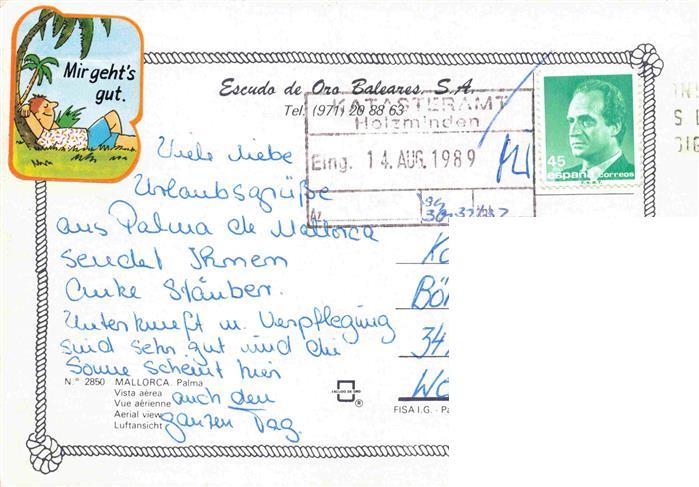 Mir geht's
gut.
Escudo de Oro Baleares, S.A.
Tel. (971) 20 88 63
KATASTERAMT
Holzminden
Eing. 14. AUG. 1989
Az
45
españa correos
F.N.M.T.
Viele liebe
Urlaubsgrüße
aus Palma de Mallorca
sendet Ihnen
Anke Stäuber.
Unterkunft u. Verpflegung
sind sehr gut und die
Sonne scheint hier
auch den
ganzen Tag.
Bör
N.º 2850 MALLORCA. Palma
Vista aérea
Vue aérienne
Aerial view
Luftansicht
ESCUDO DE ORO
®
FISA I.G. - Pa